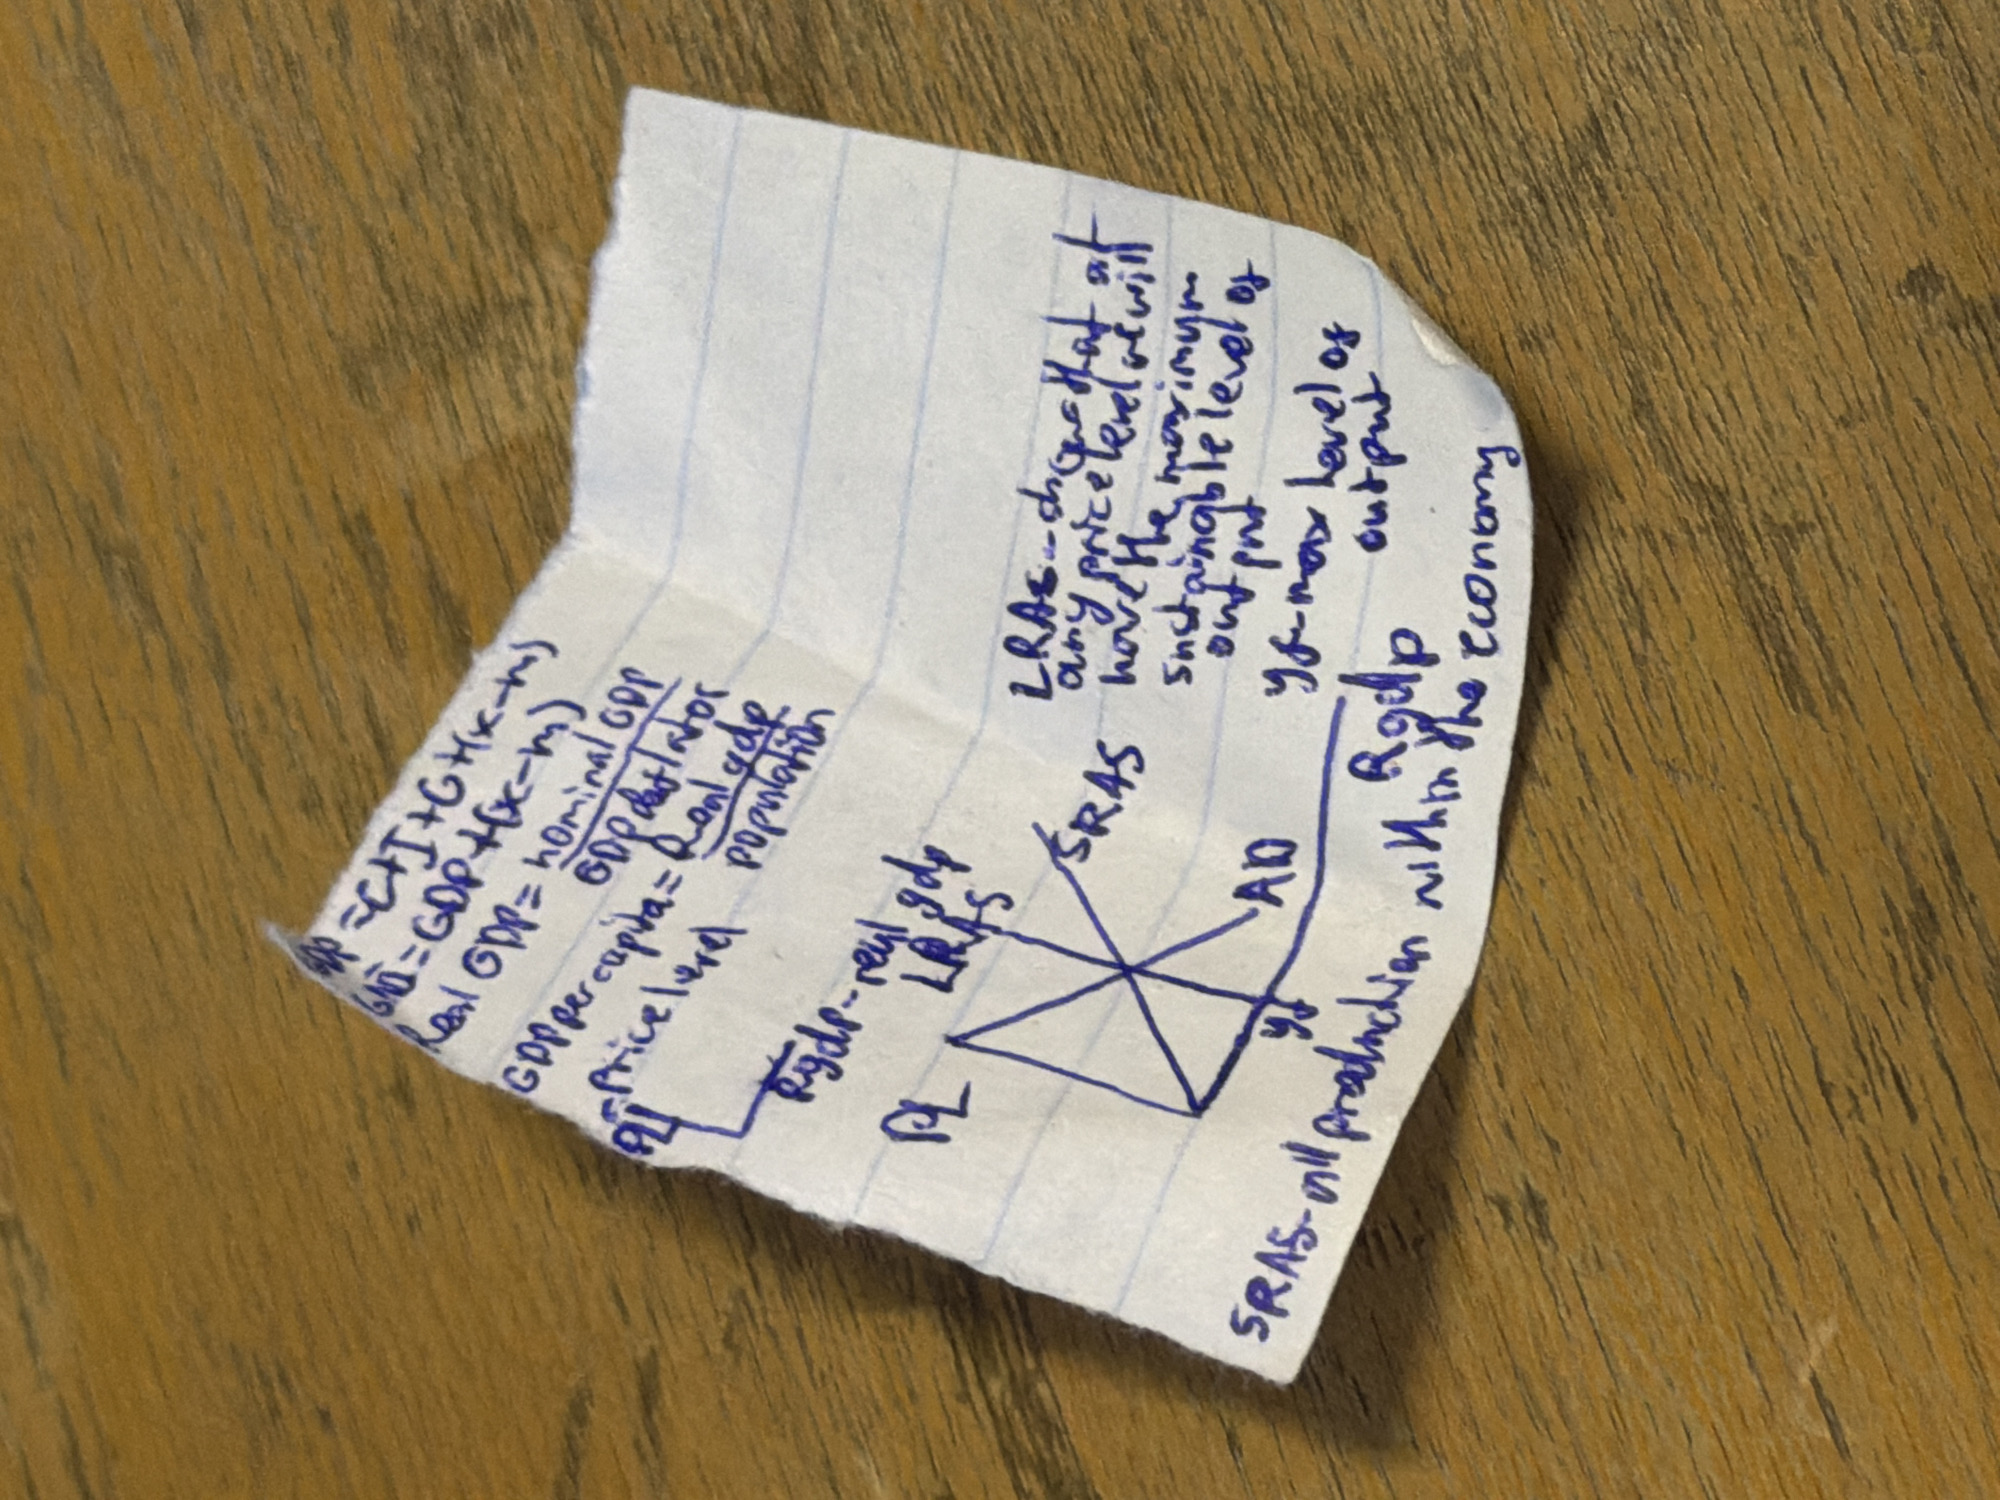 GDP = C+I+G+(x-m)
GNI = GDP+(x-m)
Real GDP = nominal GDP
GDP deflator
GDP per capita = Real gdp
population
PL - Price level
Rgdp - real gdp
PL
LRAS
SRAS
AD
yf
Rgdp
LRAS - shows that at
any price level we will
have the maximum
sustainable level of
output
yf - max level of
output
SRAS - all production within the economy